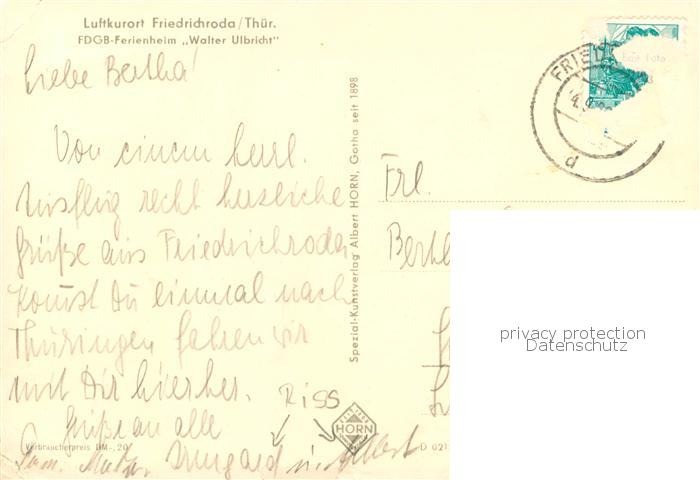 Luftkurort Friedrichroda/Thür.
FDGB-Ferienheim „Walter Ulbricht"
Liebe Bertha!
Von einem herrl.
Ausflug recht herzliche
Grüße aus Friedrichroda
Komst Du einmal nach
Thüringen fahren wir
mit Dir hierher.
Grüße an alle
Fam. Mutter Irmgard u. Albert
RISS
Verbraucherpreis DM -,20
Spezial-Kunstverlag Albert HORN, Gotha seit 1898
HORN
D 021
FRIED
4.9
d
Frl.
privacy protection
Datenschutz